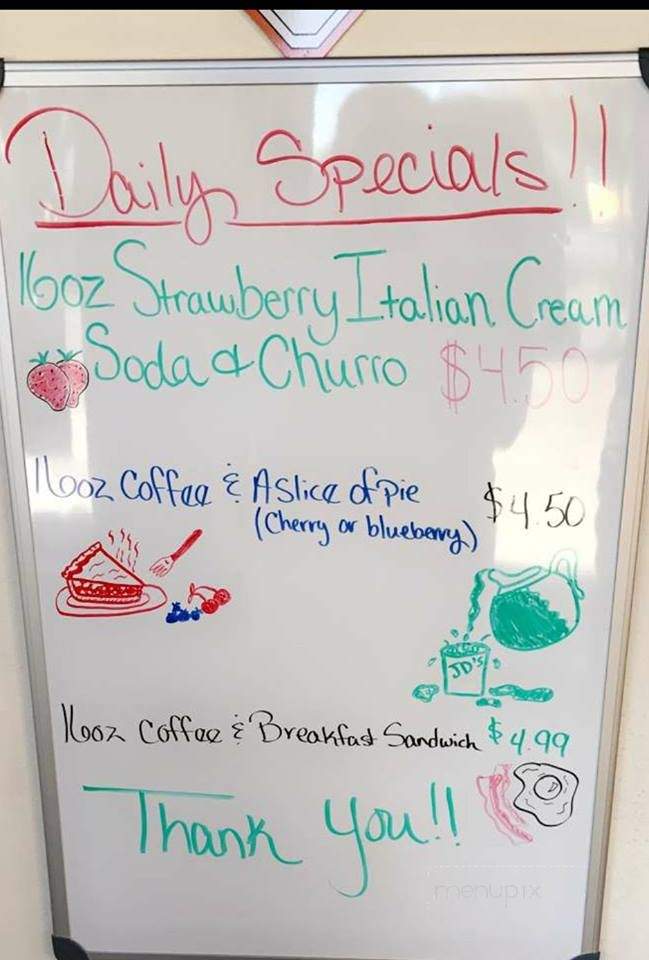 Daily Specials!!
16oz Strawberry Italian Cream
Soda & Churro $4.50
16oz Coffee & A slice of Pie $4.50
(Cherry or blueberry)
JD's
16oz Coffee & Breakfast Sandwich $4.99
Thank You!!
menupix